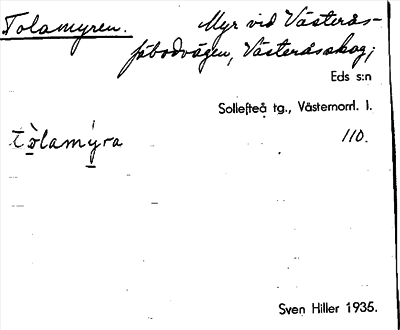 Tolamyren. Myr vid Västerås-
fäbodvägen, Västeråsskog,
Eds s:n
Sollefteå tg., Västernorrl. l.
tòlamýra 110.
Sven Hiller 1935.